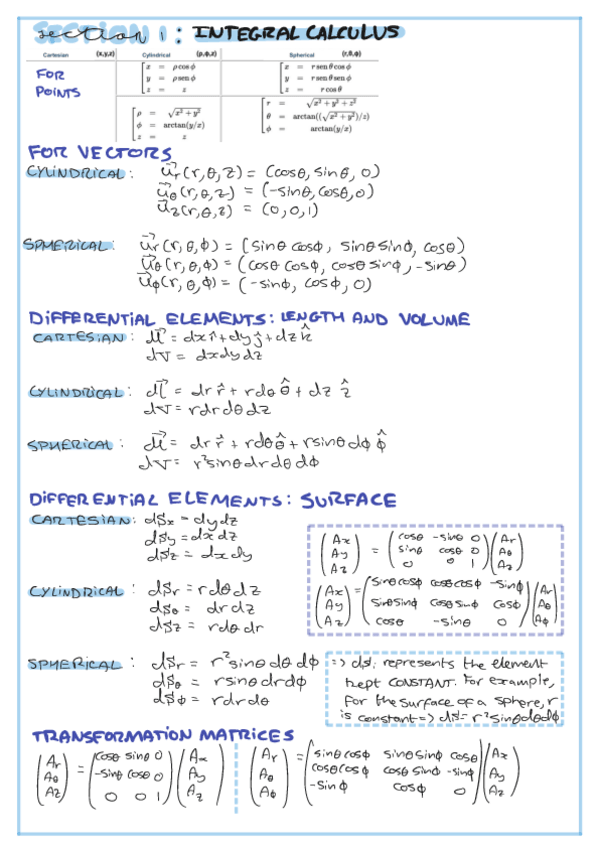 SECTION 1: INTEGRAL CALCULUS
Cartesian (x,y,z) Cylindrical (ρ,ϕ,z) Spherical (r,θ,ϕ)
FOR POINTS
x = ρ cos ϕ
y = ρ sen ϕ
z = z
x = r sen θ cos ϕ
y = r sen θ sen ϕ
z = r cos θ
ρ = √x² + y²
ϕ = arctan(y/x)
z = z
r = √x² + y² + z²
θ = arctan((√x² + y²)/z)
ϕ = arctan(y/x)
FOR VECTORS
CYLINDRICAL: u⃗r (r,θ,z) = (cosθ, sinθ, 0)
u⃗θ (r,θ,z) = (-sinθ, cosθ, 0)
u⃗z (r,θ,z) = (0,0,1)
SPHERICAL: u⃗r (r,θ,ϕ) = (sinθ cosϕ, sinθ sinϕ, cosθ)
u⃗θ (r,θ,ϕ) = (cosθ cosϕ, cosθ sinϕ, -sinθ)
u⃗ϕ (r,θ,ϕ) = (-sinϕ, cosϕ, 0)
DIFFERENTIAL ELEMENTS: LENGTH AND VOLUME
CARTESIAN: dl⃗ = dx î + dy ĵ + dz k̂
dV = dxdydz
CYLINDRICAL: dl⃗ = dr r̂ + rdθ θ̂ + dz ẑ
dV = rdrdθdz
SPHERICAL: dl⃗ = dr r̂ + rdθ θ̂ + rsinθdϕ ϕ̂
dV = r²sinθdrdθdϕ
DIFFERENTIAL ELEMENTS: SURFACE
CARTESIAN: dSx = dydz
dSy = dxdz
dSz = dxdy
(Ax) = (cosθ -sinθ 0) (Ar)
(Ay) (sinθ cosθ 0) (Aθ)
(Az) (0 0 1) (Az)
CYLINDRICAL: dSr = rdθdz
dSθ = drdz
dSz = rdθdr
(Ax) = (sinθcosϕ cosθcosϕ -sinϕ) (Ar)
(Ay) (sinθsinϕ cosθsinϕ cosϕ) (Aθ)
(Az) (cosθ -sinθ 0) (Aϕ)
SPHERICAL: dSr = r²sinθdθdϕ
dSθ = rsinθdrdϕ
dSϕ = rdrdθ
=> dSi represents the element
kept CONSTANT. For example,
for the surface of a sphere, r
is constant => dS = r²sinθdθdϕ
TRANSFORMATION MATRICES
(Ar) = (cosθ sinθ 0) (Ax)
(Aθ) (-sinθ cosθ 0) (Ay)
(Az) (0 0 1) (Az)
(Ar) = (sinθcosϕ sinθsinϕ cosθ) (Ax)
(Aθ) (cosθcosϕ cosθsinϕ -sinϕ) (Ay)
(Aϕ) (-sinϕ cosϕ 0) (Az)